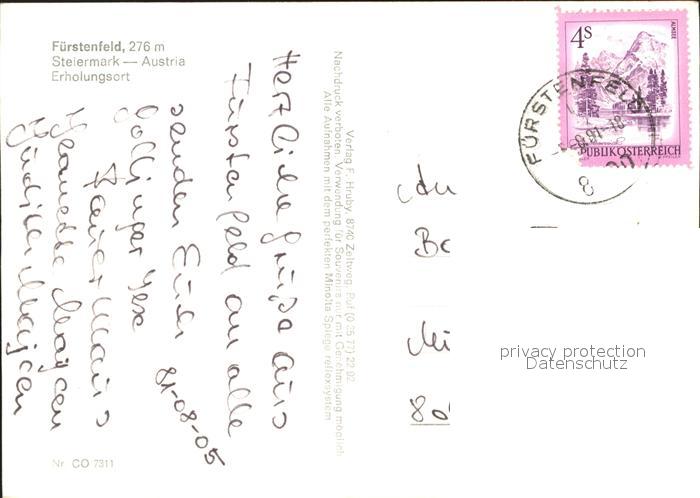 Fürstenfeld, 276 m
Steiermark — Austria
Erholungsort
Herzliche Grüße aus
Fürstenfeld an alle
senden Euch
81-08-05
Nr. CO 7311
Verlag F. Hruby, 8740 Zeltweg, Ruf (0 35 77) 22 92
Nachdruck verboten. Verwendung für Souvenirs nur mit Genehmigung möglich
Alle Aufnahmen mit dem perfekten Minolta Spiegelreflexsystem
4S
ALMSEE
REPUBLIK ÖSTERREICH
FÜRSTENFELD
An
Be
Mi
80
privacy protection
Datenschutz